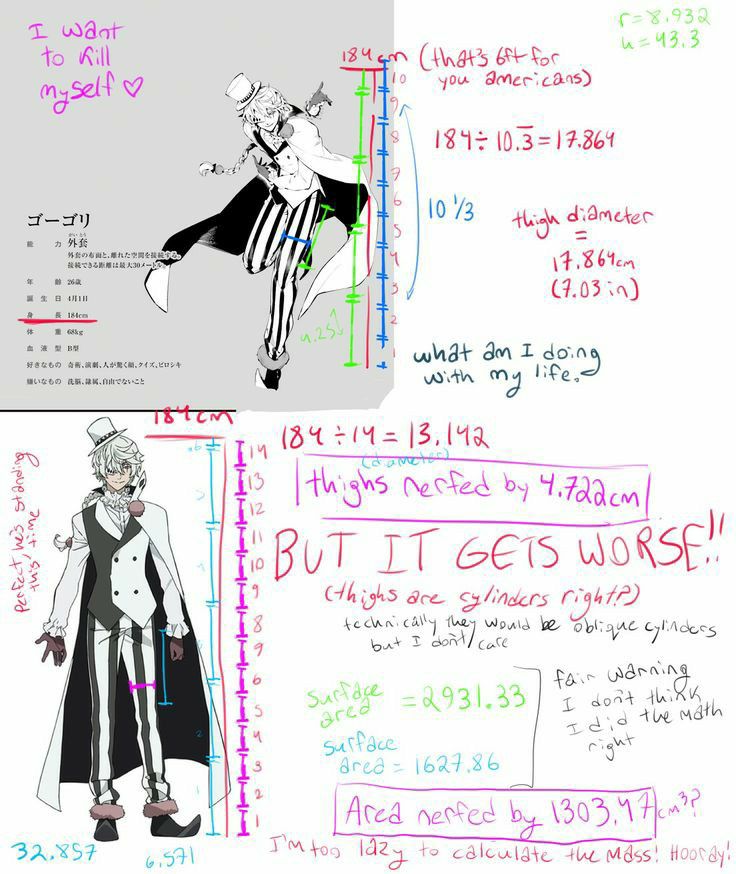 I want
to kill
myself ♡
r=8.932
h=43.3
184 cm (that's 6ft for
you americans)
10
9
8
7
6
5
4
3
2
1
10 1/3
4.25
184÷10.3̅=17.864
thigh diameter
=
17.864cm
(7.03 in)
what am I doing
with my life.
ゴーゴリ
能力 外套
がいとう
外套の布面と、離れた空間を接続する。
接続できる距離は最大30メートル。
年齢 26歳
誕生日 4月1日
身長 184cm
体重 68kg
血液型 B型
好きなもの 奇術、演劇、人が驚く顔、クイズ、ピロシキ
嫌いなもの 洗脳、隷属、自由でないこと
184cm
perfect, he's standing
this time
14
13
12
11
10
9
8
7
6
5
4
3
2
1
2
1
32.857
6.571
184÷14=13.142
(diameter)
thighs nerfed by 4.722cm
BUT IT GETS WORSE!!
(thighs are cylinders right?)
technically they would be oblique cylinders
but I don't care
surface
area =2931.33
surface
area=1627.86
fair warning
I don't think
I did the math
right
Area nerfed by 1303.47 cm³?
I'm too lazy to calculate the mass! Hooray!